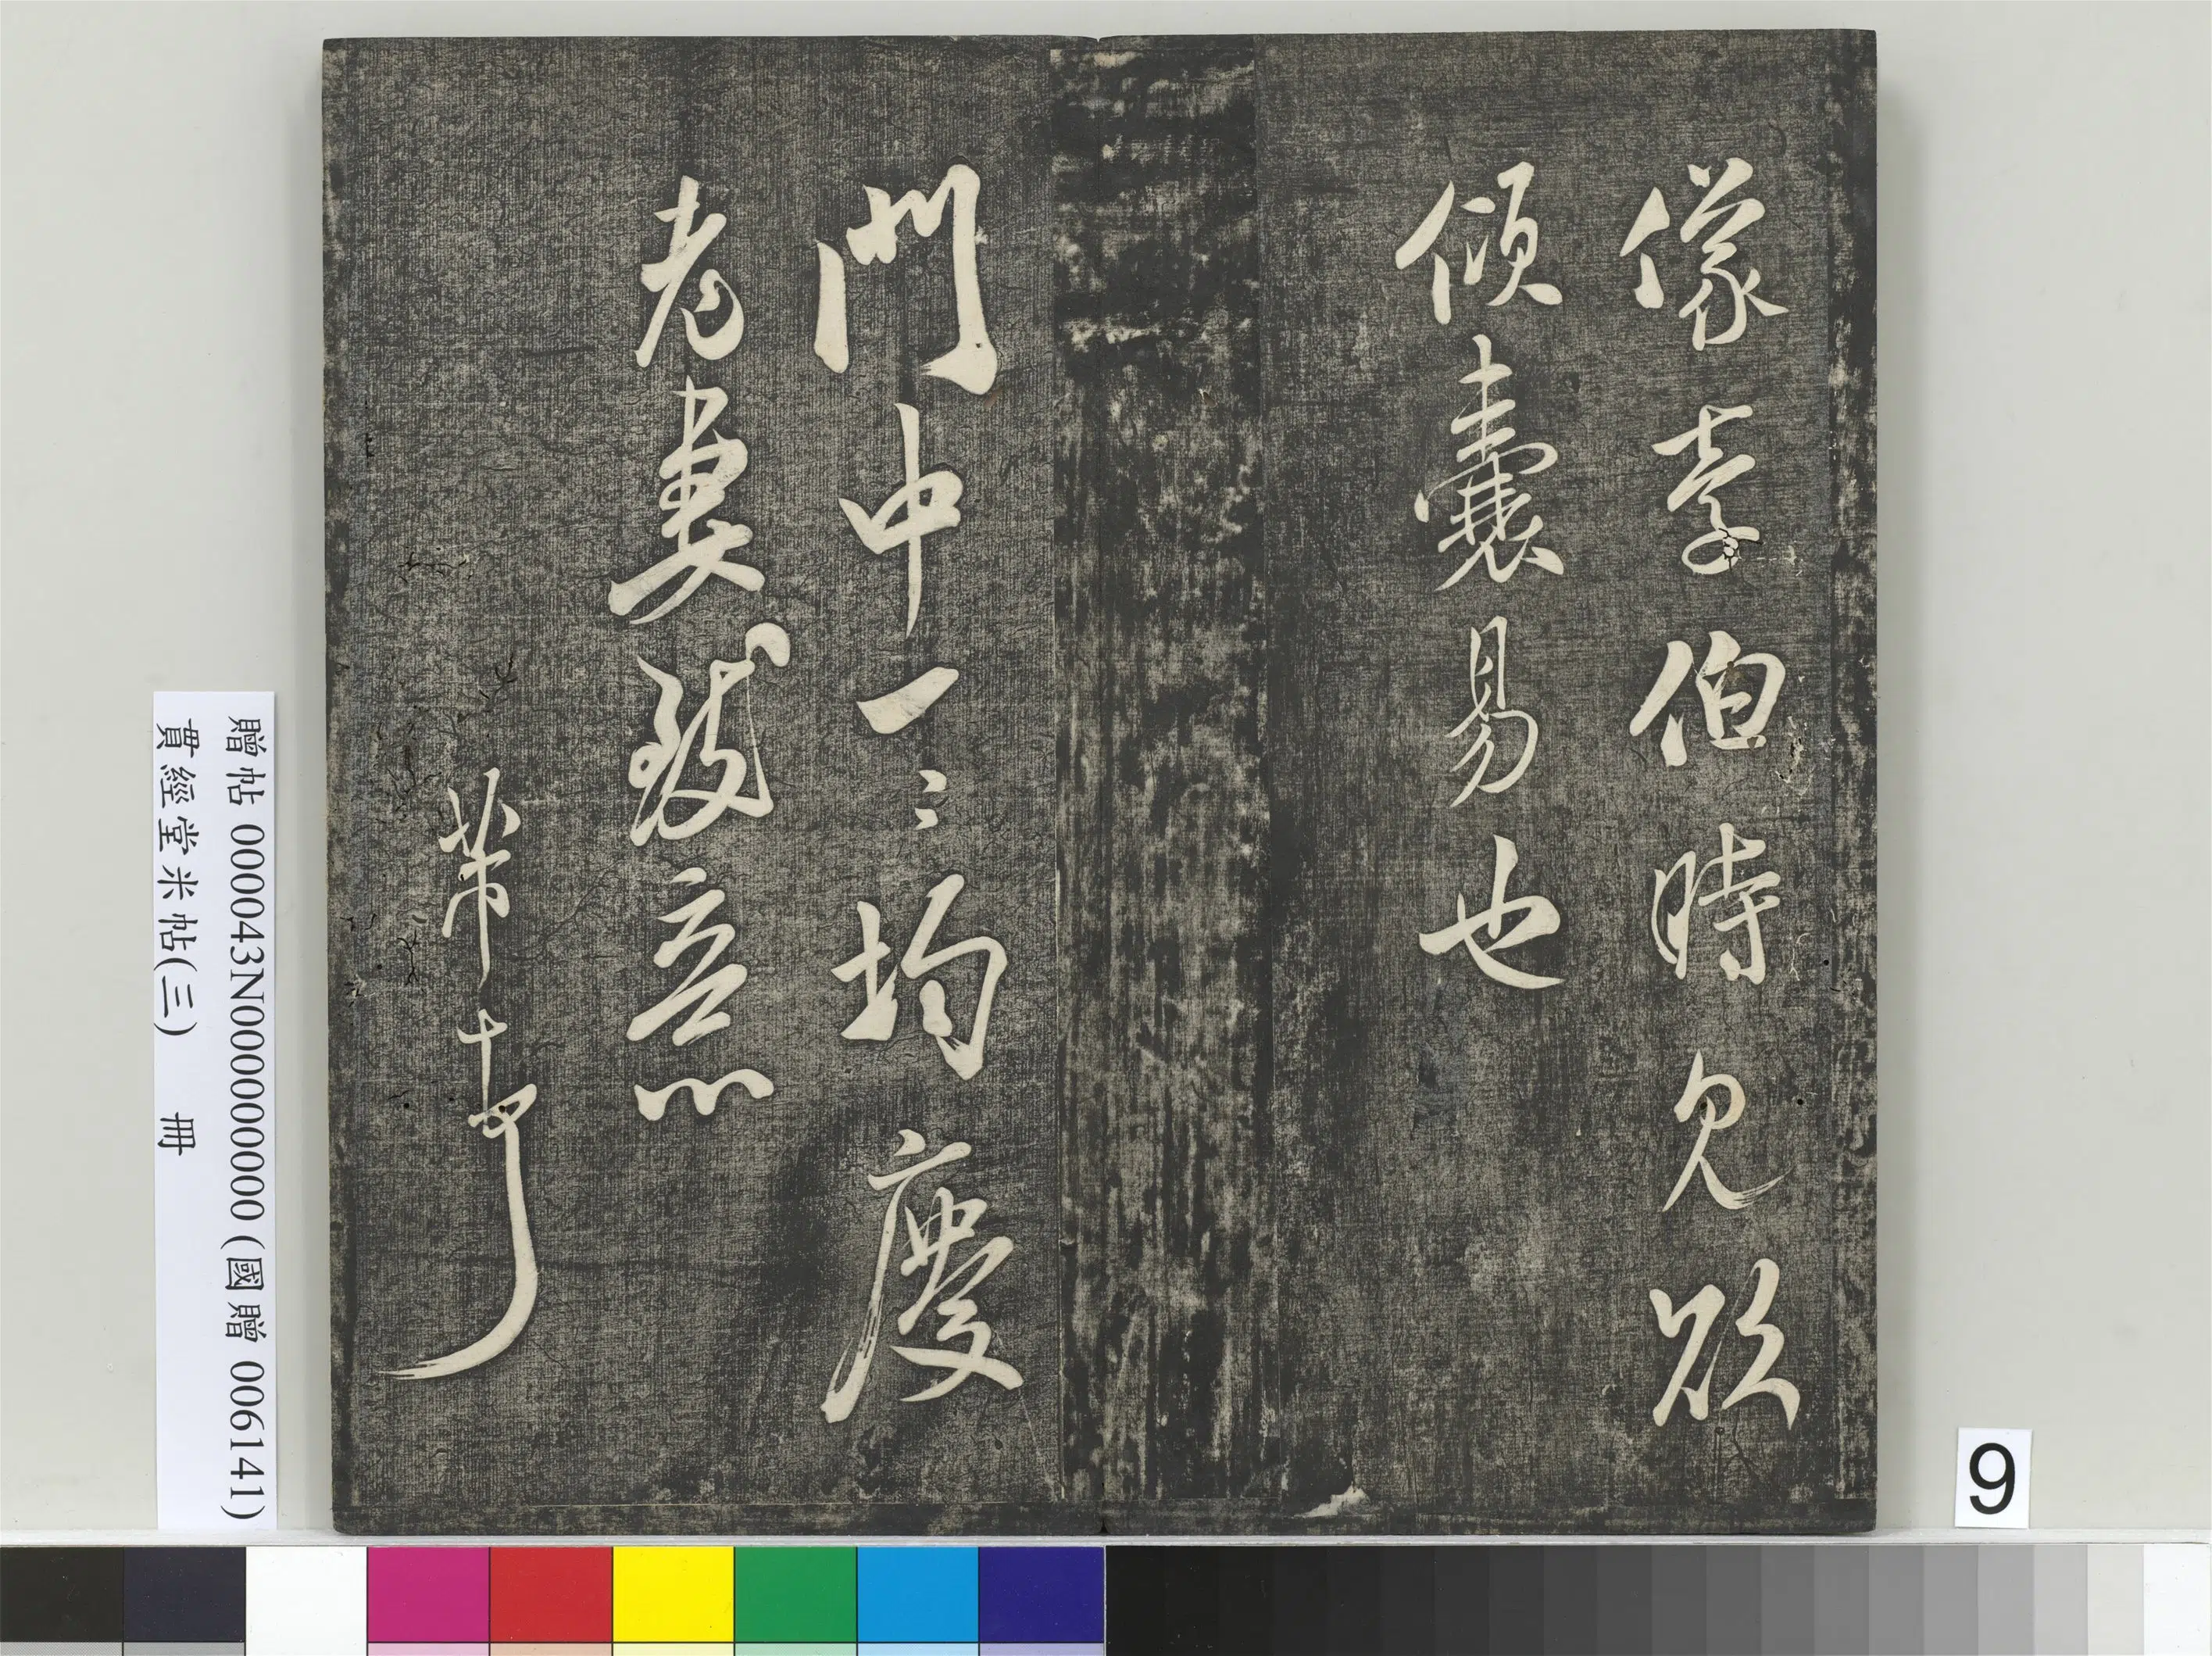 像李伯時見欲
傾囊易也
門中一〻均慶
老妻致意
芾
贈帖 000043N000000000 (國贈 006141)
貫經堂米帖(三) 冊
9